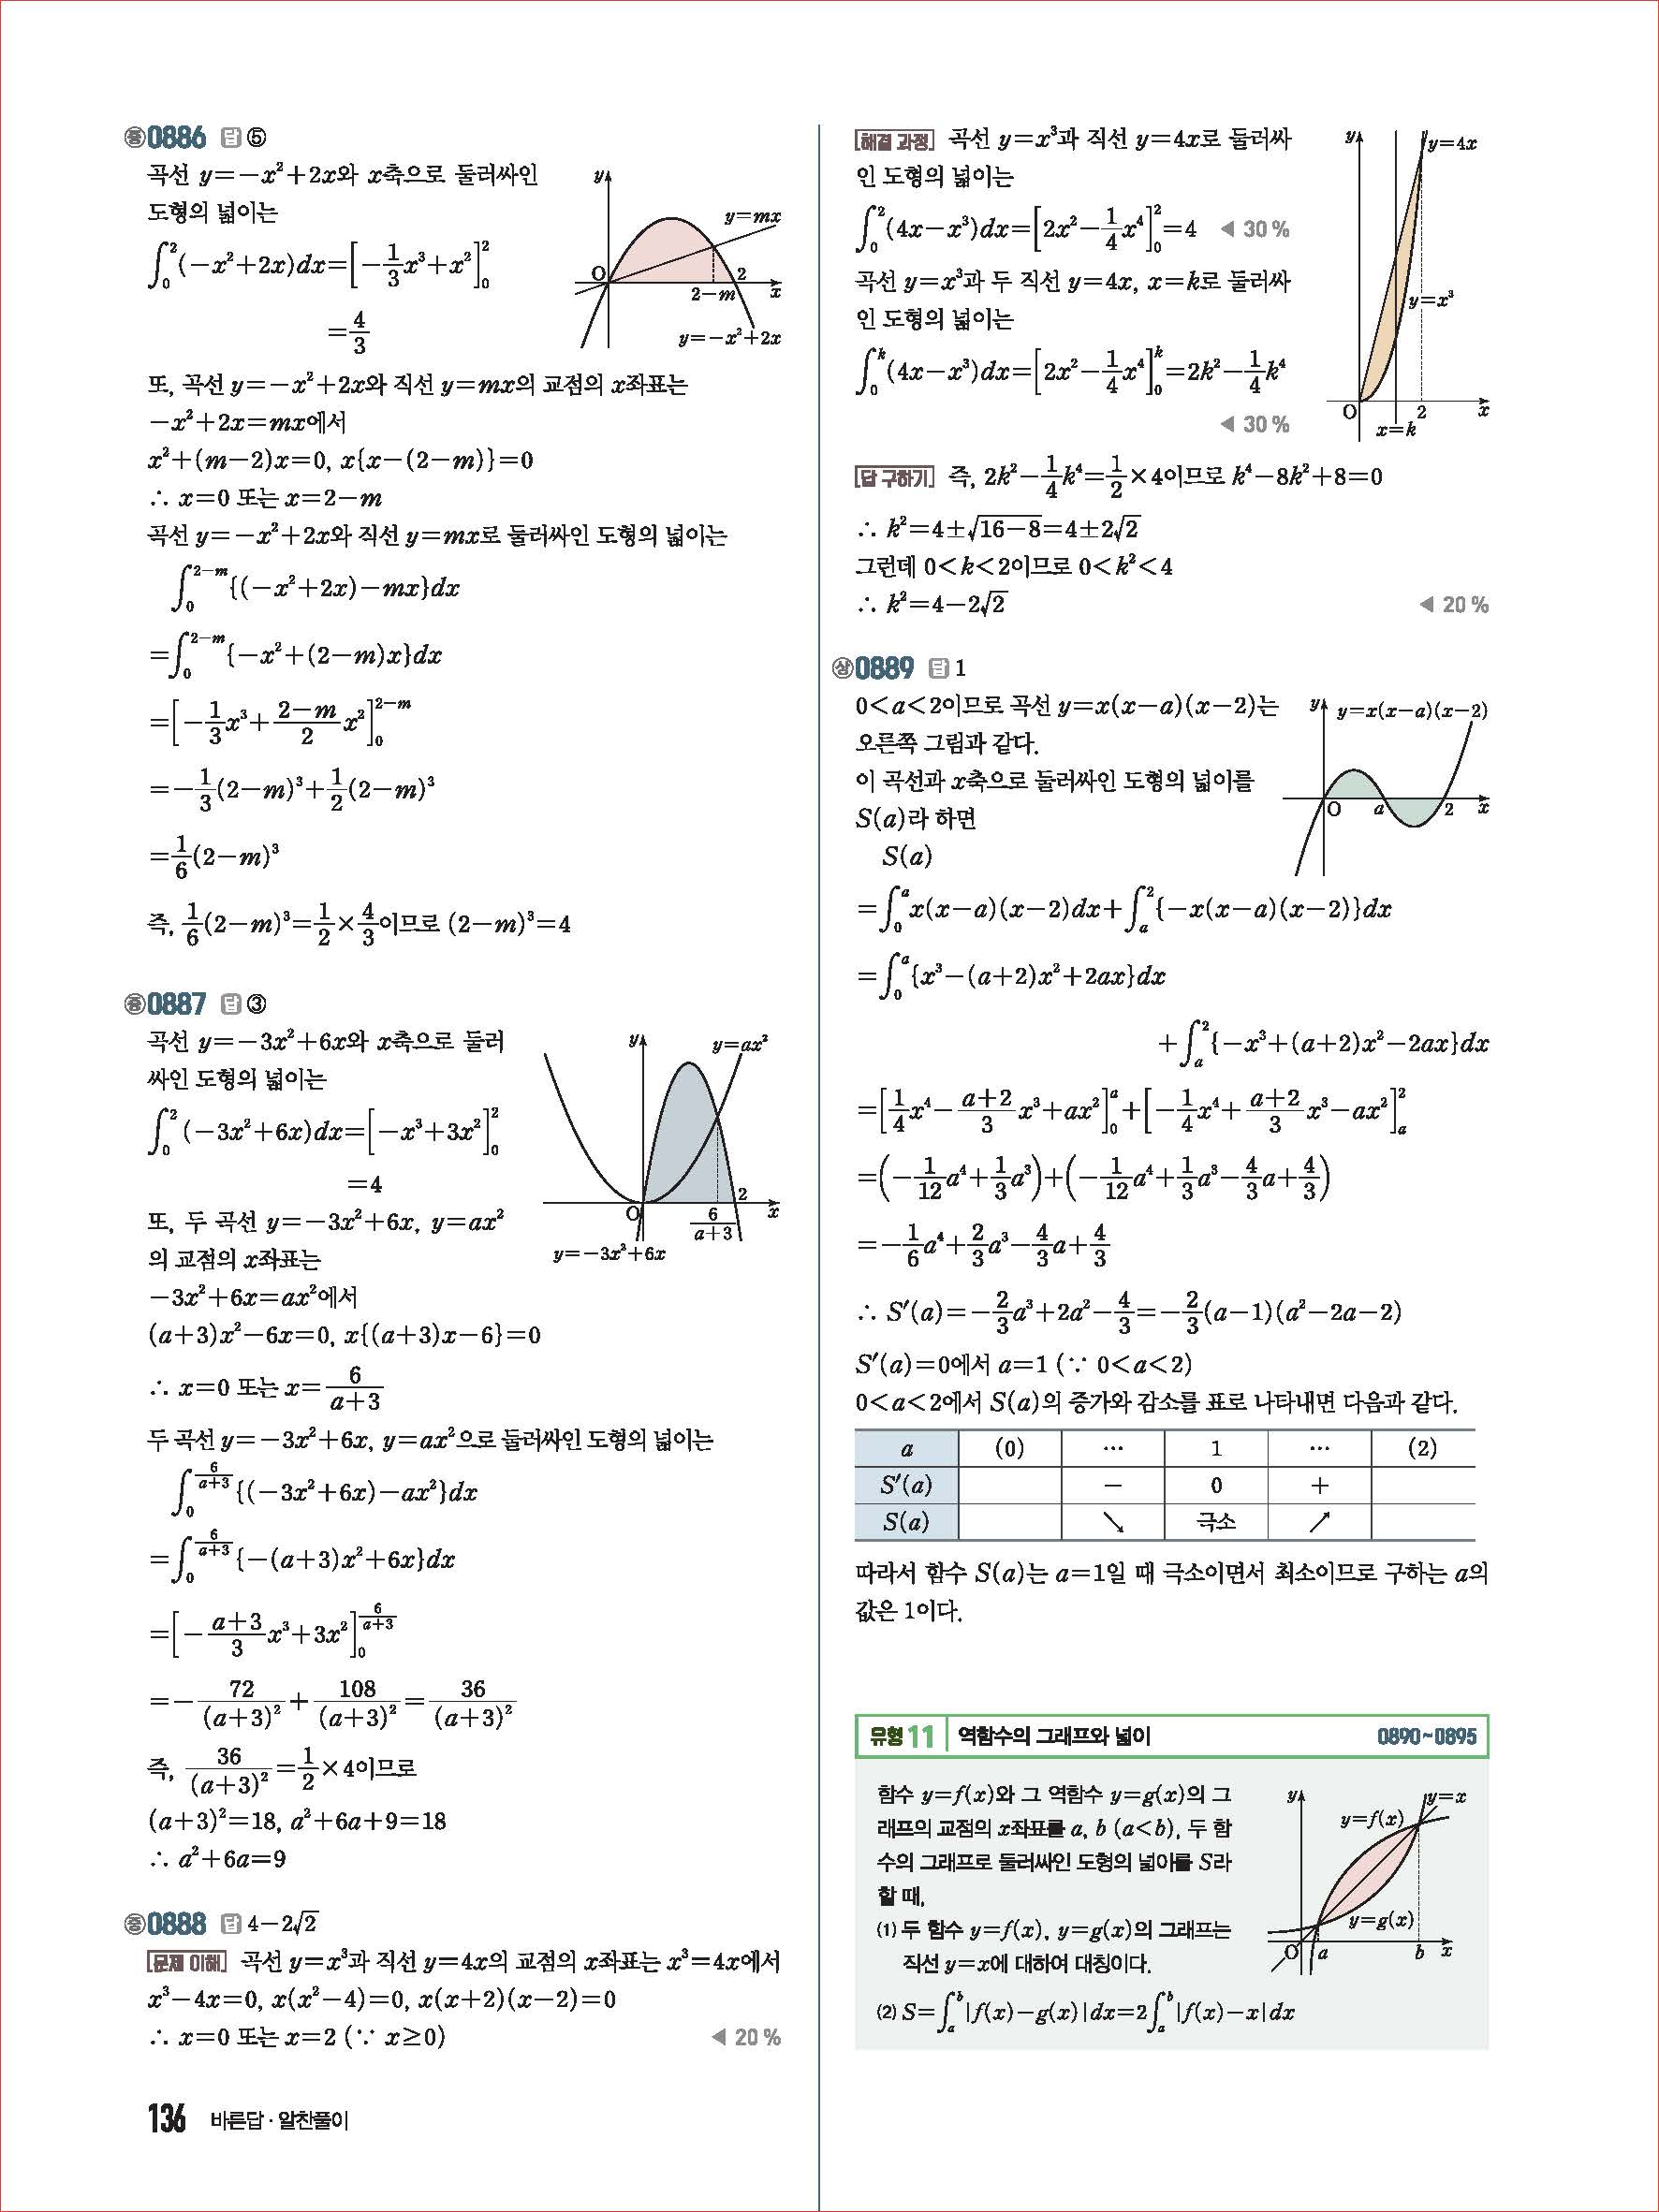 중 0886 답 ⑤
곡선 y=-x²+2x와 x축으로 둘러싸인
도형의 넓이는
∫₀²(-x²+2x)dx=[-1/3x³+x²]₀²
=4/3
y
y=mx
O
2-m
2
x
y=-x²+2x
또, 곡선 y=-x²+2x와 직선 y=mx의 교점의 x좌표는
-x²+2x=mx에서
x²+(m-2)x=0, x{x-(2-m)}=0
∴ x=0 또는 x=2-m
곡선 y=-x²+2x와 직선 y=mx로 둘러싸인 도형의 넓이는
∫₀^(2-m){(-x²+2x)-mx}dx
=∫₀^(2-m){-x²+(2-m)x}dx
=[-1/3x³+(2-m)/2 x²]₀^(2-m)
=-1/3(2-m)³+1/2(2-m)³
=1/6(2-m)³
즉, 1/6(2-m)³=1/2×4/3이므로 (2-m)³=4
중 0887 답 ③
곡선 y=-3x²+6x와 x축으로 둘러
싸인 도형의 넓이는
∫₀²(-3x²+6x)dx=[-x³+3x²]₀²
=4
또, 두 곡선 y=-3x²+6x, y=ax²
의 교점의 x좌표는
y
y=ax²
O
6/(a+3)
2
x
y=-3x²+6x
-3x²+6x=ax²에서
(a+3)x²-6x=0, x{(a+3)x-6}=0
∴ x=0 또는 x=6/(a+3)
두 곡선 y=-3x²+6x, y=ax²으로 둘러싸인 도형의 넓이는
∫₀^(6/(a+3)){(-3x²+6x)-ax²}dx
=∫₀^(6/(a+3)){-(a+3)x²+6x}dx
=[-(a+3)/3 x³+3x²]₀^(6/(a+3))
=-72/(a+3)²+108/(a+3)²=36/(a+3)²
즉, 36/(a+3)²=1/2×4이므로
(a+3)²=18, a²+6a+9=18
∴ a²+6a=9
중 0888 답 4-2√2
문제 이해 곡선 y=x³과 직선 y=4x의 교점의 x좌표는 x³=4x에서
x³-4x=0, x(x²-4)=0, x(x+2)(x-2)=0
∴ x=0 또는 x=2 (∵ x≥0) ◀ 20 %
136 바른답 · 알찬풀이
해결 과정 곡선 y=x³과 직선 y=4x로 둘러싸
인 도형의 넓이는
∫₀²(4x-x³)dx=[2x²-1/4x⁴]₀²=4 ◀ 30 %
곡선 y=x³과 두 직선 y=4x, x=k로 둘러싸
인 도형의 넓이는
∫₀ᵏ(4x-x³)dx=[2x²-1/4x⁴]₀ᵏ=2k²-1/4k⁴
◀ 30 %
y
y=4x
y=x³
O
2
x
x=k
답 구하기 즉, 2k²-1/4k⁴=1/2×4이므로 k⁴-8k²+8=0
∴ k²=4±√(16-8)=4±2√2
그런데 0<k<2이므로 0<k²<4
∴ k²=4-2√2 ◀ 20 %
상 0889 답 1
0<a<2이므로 곡선 y=x(x-a)(x-2)는
오른쪽 그림과 같다.
이 곡선과 x축으로 둘러싸인 도형의 넓이를
S(a)라 하면
y
y=x(x-a)(x-2)
O
a
2
x
S(a)
=∫₀ᵃx(x-a)(x-2)dx+∫ₐ²{-x(x-a)(x-2)}dx
=∫₀ᵃ{x³-(a+2)x²+2ax}dx
+∫ₐ²{-x³+(a+2)x²-2ax}dx
=[1/4x⁴-(a+2)/3 x³+ax²]₀ᵃ+[-1/4x⁴+(a+2)/3 x³-ax²]ₐ²
=(-1/12a⁴+1/3a³)+(-1/12a⁴+1/3a³-4/3a+4/3)
=-1/6a⁴+2/3a³-4/3a+4/3
∴ S′(a)=-2/3a³+2a²-4/3=-2/3(a-1)(a²-2a-2)
S′(a)=0에서 a=1 (∵ 0<a<2)
0<a<2에서 S(a)의 증가와 감소를 표로 나타내면 다음과 같다.
a (0) ⋯ 1 ⋯ (2)
S′(a) - 0 +
S(a) ↘ 극소 ↗
따라서 함수 S(a)는 a=1일 때 극소이면서 최소이므로 구하는 a의
값은 1이다.
유형 11 역함수의 그래프와 넓이 0890~0895
함수 y=f(x)와 그 역함수 y=g(x)의 그
래프의 교점의 x좌표를 a, b (a<b), 두 함
수의 그래프로 둘러싸인 도형의 넓이를 S라
할 때,
(1) 두 함수 y=f(x), y=g(x)의 그래프는
직선 y=x에 대하여 대칭이다.
(2) S=∫ₐᵇ|f(x)-g(x)|dx=2∫ₐᵇ|f(x)-x|dx
y
y=x
y=f(x)
y=g(x)
O
a
b
x